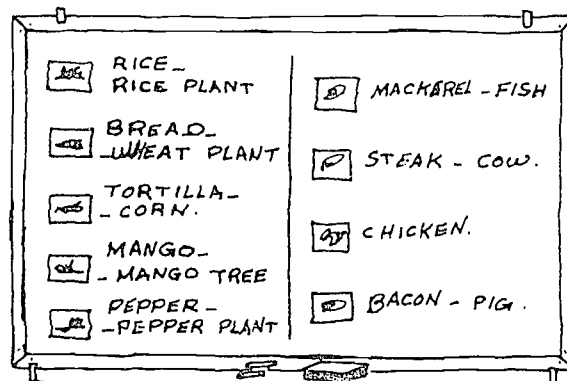 RICE_
RICE PLANT
BREAD_
_WHEAT PLANT
TORTILLA_
_CORN.
MANGO_
_MANGO TREE
PEPPER_
_PEPPER PLANT
MACKEREL - FISH
STEAK - COW.
CHICKEN.
BACON - PIG.